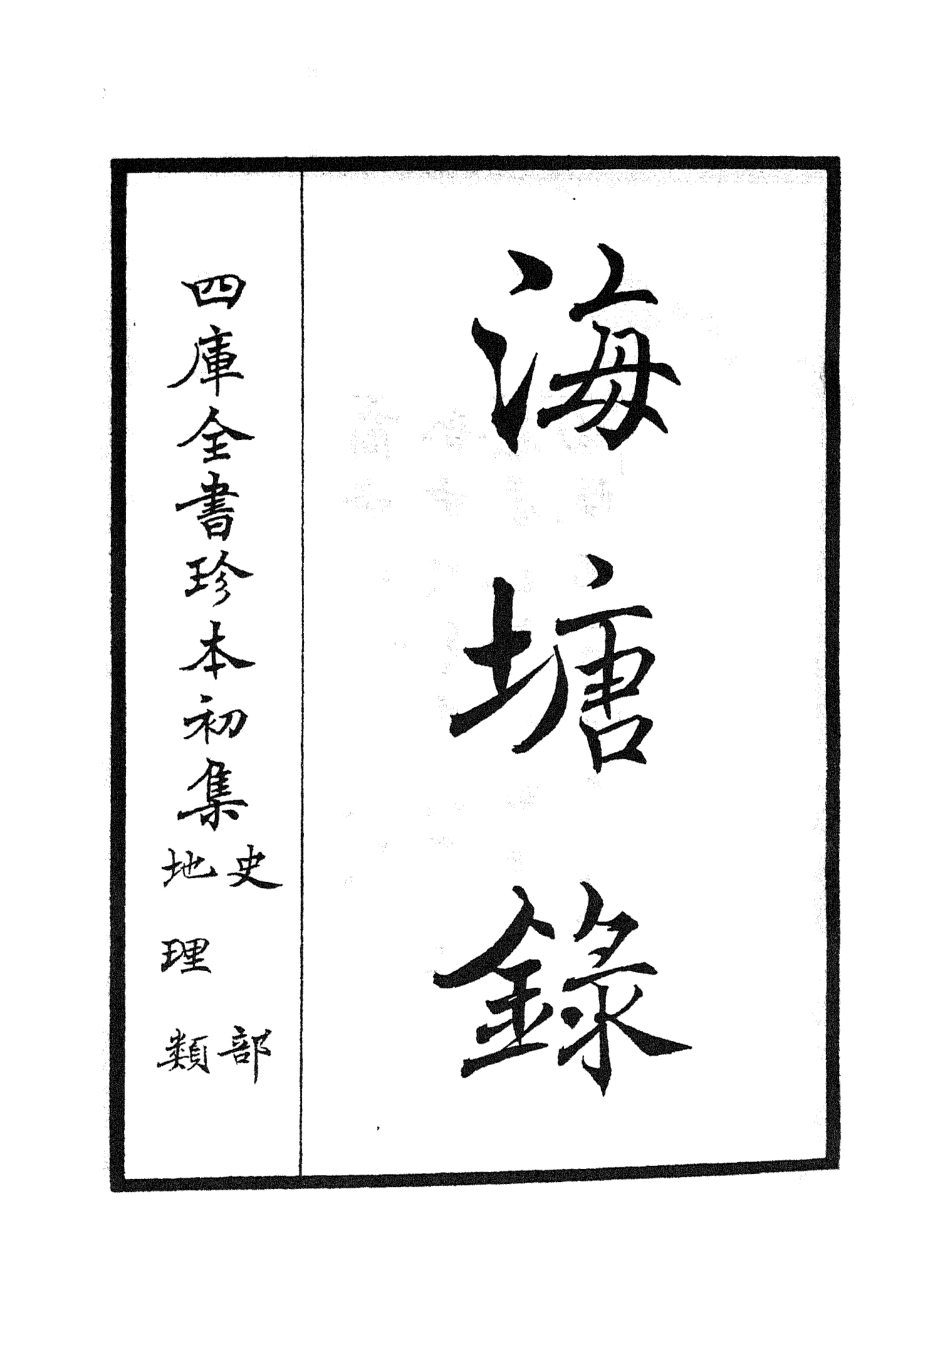 海塘錄
四庫全書珍本初集
史部
地理類